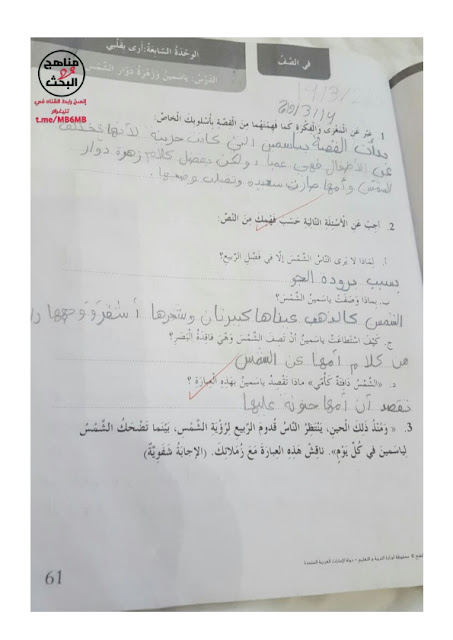 مناهج
البحث
إلصق رابط القناه في
تليقرام
t.me/MB6MB
في الصَّفِّ
الوَحْدَةُ السّابِعَةُ: أَرى بِقَلْبي
الدَّرْسُ: ياسَمينُ وَزَهْرَةُ دَوّارِ الشَّمْسِ
1. عَبِّر عَنِ المَغْزى وَالفِكْرَةِ كَما فَهِمْتَهُما مِنَ القِصَّةِ بِأُسْلوبِكَ الخاصِّ:
بدأت القصة بياسمين التي كانت حزينة لأنها تختلف
عن الأطفال فهي عمياء ولكن بفضل كلام زهرة دوار
الشمس وأمها صارت سعيدة وتقبلت وضعها.
2. أَجِبْ عَنِ الأَسْئِلَةِ التّالِيَةِ حَسَبَ فَهْمِكَ مِنَ النَّصِّ:
أ. لِماذا لا يَرى النّاسُ الشَّمْسَ إلّا في فَصْلِ الرَّبيعِ؟
بسبب برودة الجو
ب. بِماذا وَصَفَتْ ياسَمينُ الشَّمْسَ؟
الشمس كالذهب عيناها كبيرتان وشعرها أشقر ووجهها
ج. كَيْفَ اسْتَطاعَتْ ياسَمينُ أَنْ تَصِفَ الشَّمْسَ وَهِيَ فاقِدَةُ البَصَرِ؟
من كلام أمها عن الشمس
د. «الشَّمْسُ دافِئَةٌ كَأُمّي» ماذا تَقْصِدُ ياسَمينُ بِهَذِهِ العِبارَةِ ؟
تقصد أن أمها حنونة عليها
3. « وَمُنْذُ ذَلِكَ الحينِ، يَنْتَظِرُ النّاسُ قُدومَ الرَّبيعِ لِرُؤْيَةِ الشَّمْسِ، بَيْنَما تَضْحَكُ الشَّمْسُ
لِياسَمينَ في كُلِّ يَوْمٍ». ناقِشْ هَذِهِ العِبارَةَ مَعَ زُمَلائِكَ. (الإجابَةُ شَفَوِيَّةٌ)
محفوظة لوزارة التربية و التعليم - دولة الإمارات العربية المتحدة
61